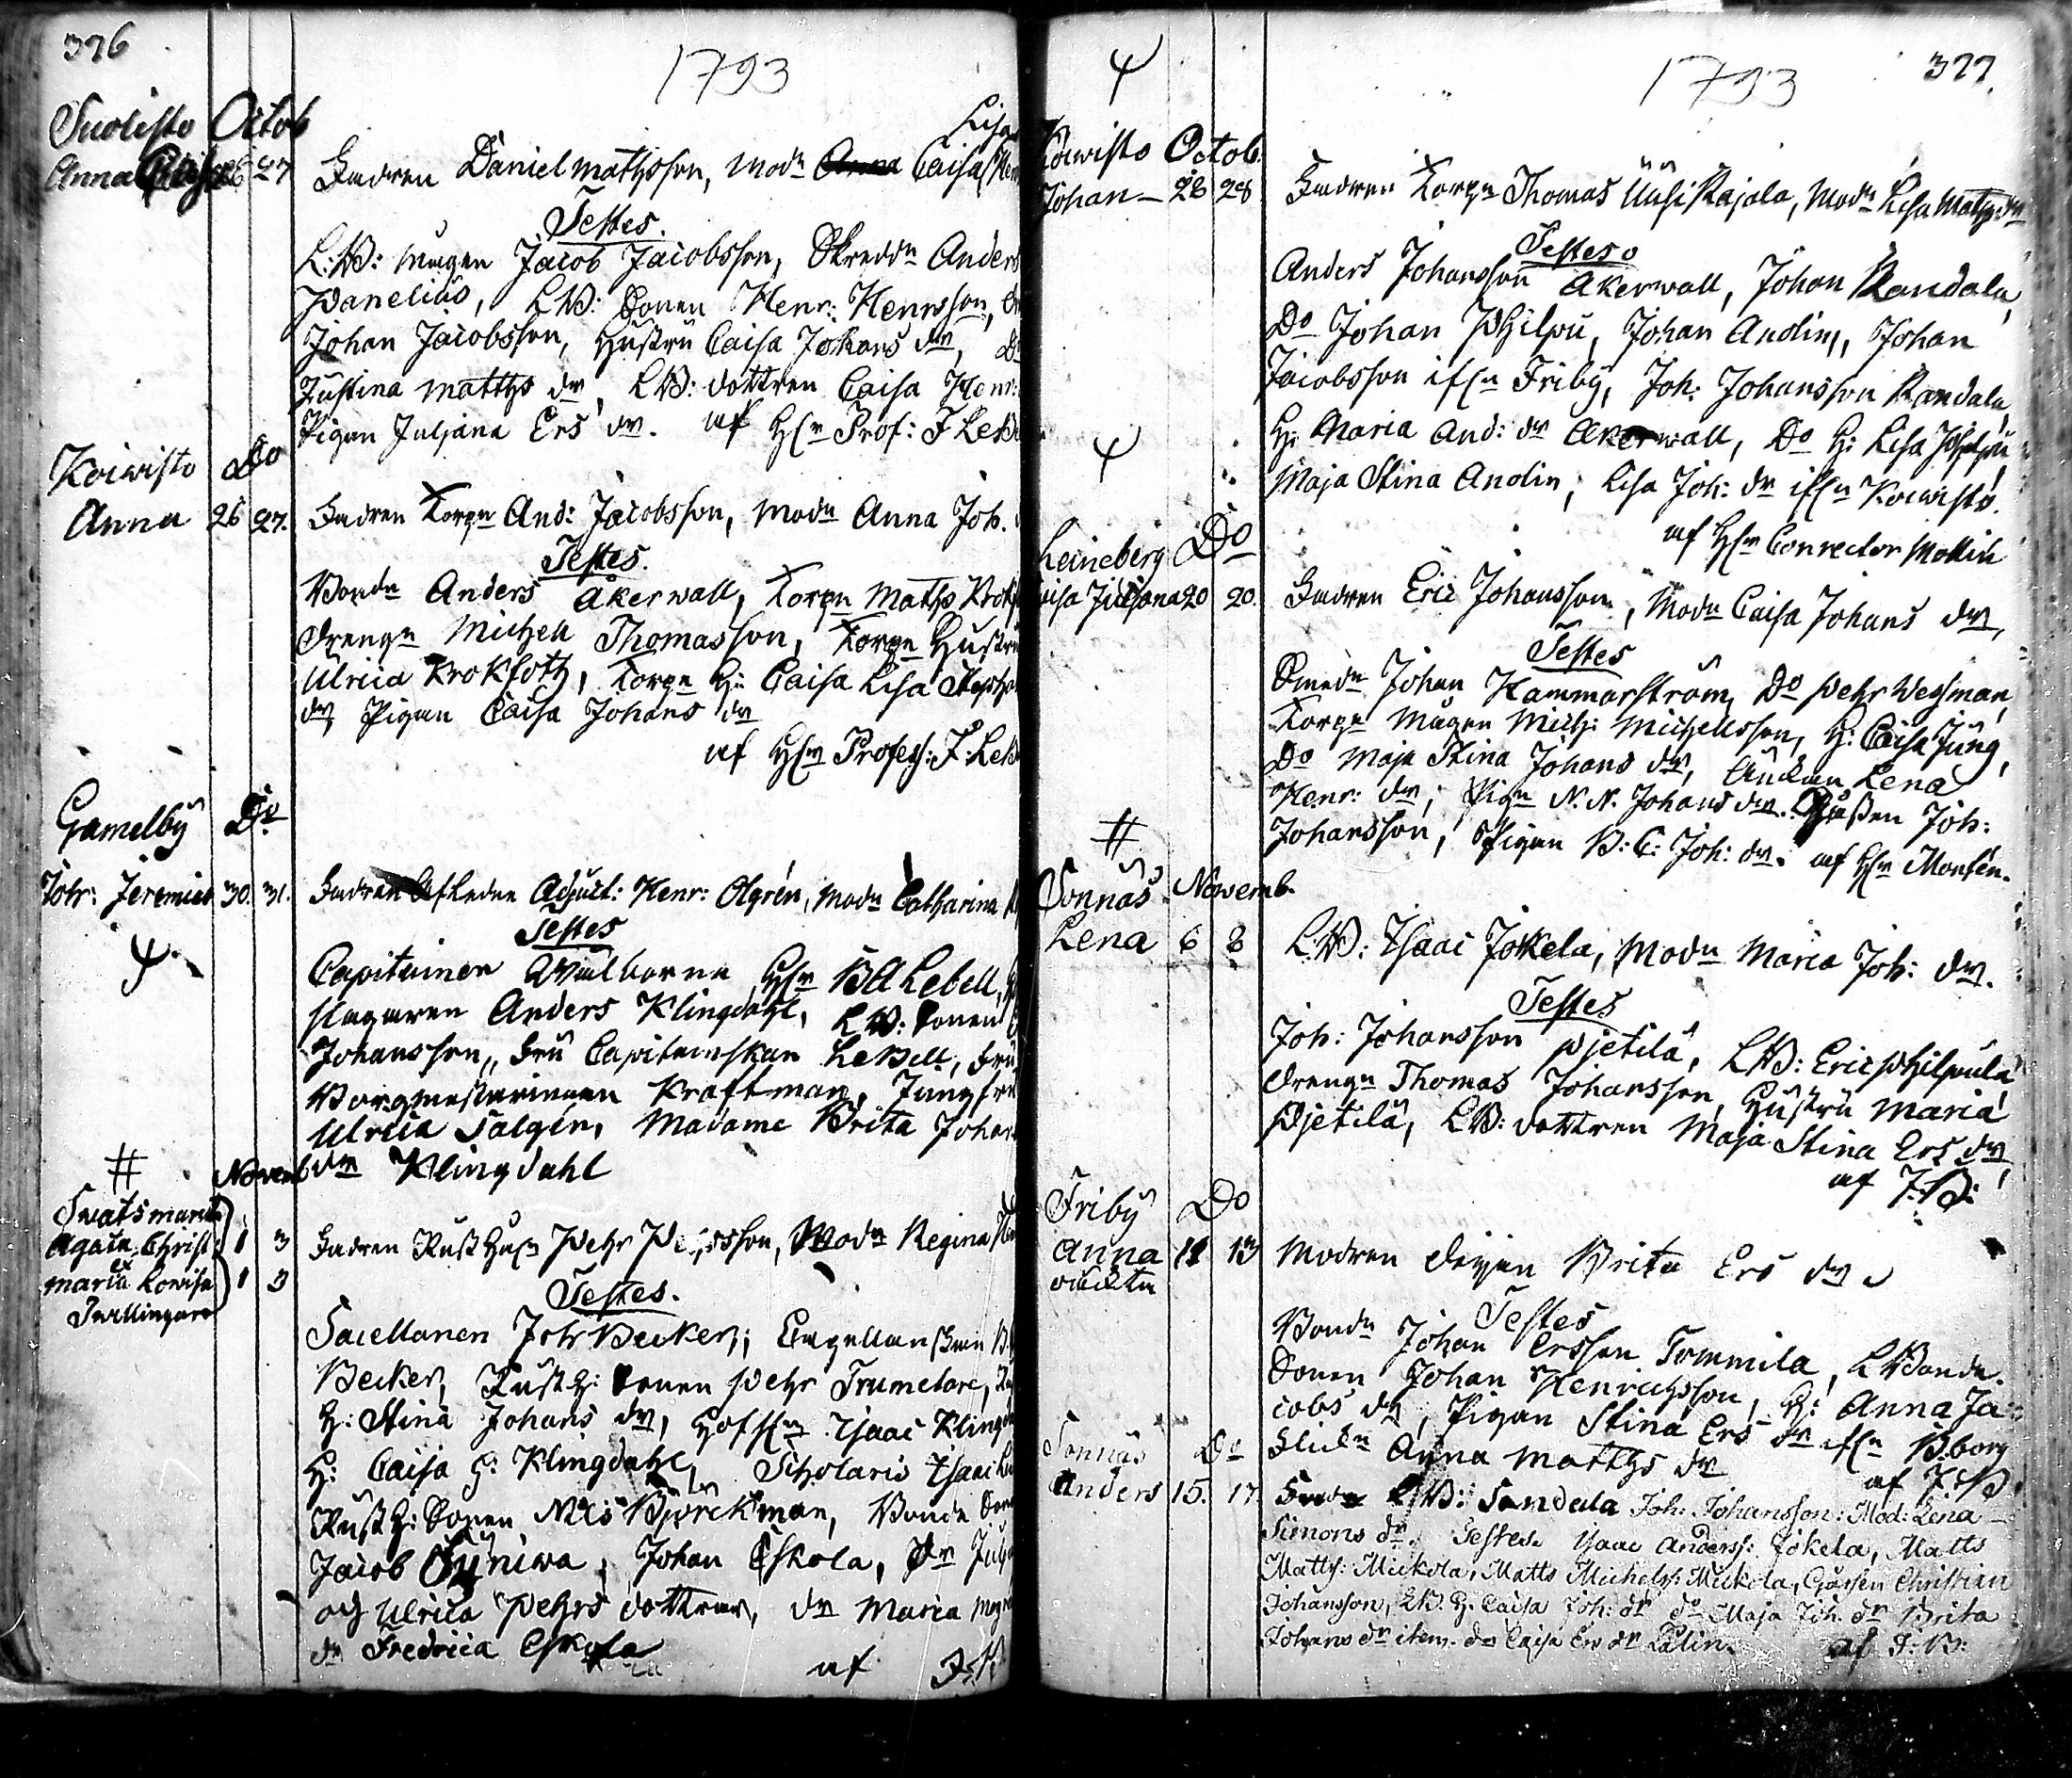 376
1793
Suolisto Octob
Lisa
Anna 26 27 Fadren Daniel Mathsson, Modn Anna Caisa
Testes.
L:B: Mågen Jacob Jacobsson, Skreddn Anders
Panelius, LB: Sonen Henr: Henrsson,
Johan Jacobsson, Hustru Caisa Johans dr, Do
Justina Matths dr, LB: dottren Caisa Henr:
Pigan Juljana Ers dr. af Hrn Prof: F LeB
Koivisto Do
Anna 26 27. Fadren Torpn And: Jacobsson, Modn Anna Joh.
Testes.
Bondn Anders Åkerwall, Torpn Maths Krokf
drengn Michell Thomasson, Torpn Hustru
Ulrica Krokfoth, Torpn H: Caisa Lisa Stepha
dr, Pigan Caisa Johans dr
af Hrn Profess: F: LeB
Gamelby Do
Johr: Jeremias 30. 31. Fadren Afledne Adjunct: Henr: Olgrén, Modn Catharina
Testes
Capitainen Hrn BA Lebell,
slagaren Anders Klingdahl, LB: Sonen
Johansson, Fru Capitainskan LeBell, Fru
Borgmesterinnan Kraftman, Jungfru
Ulrica Salgén, Madame Brita Johan
dr Klingdahl
# Novemb
Svartsmark
Agata Christ: 1 3 Fadren Rusth:n Pehr Pehrsson, Modn Regina
et
Maria Lovisa 1 3
Tvillingare
Testes.
Sacellanen Johr Becker, Capellanskan
Becker, Rusth: Sonen Pehr Trumelare,
H: Stina Johans dr, Isaac Klingda
H: Caisa H: Klingdahl, Scholaris Isaac
Rusth: Sonen Nils Björckman, Bonde Son
Jacob Syniwa, Johan Eskola, Dr
och Ulrica Pehrs dottrar, dr Maria
dr Fredrica Eskola
af J.B.
377.
1793
Koivisto Octob.
Johan 28 28 Fadren Torpn Thomas Uusi Rajala, Modn Lisa Maths dr
Testes
Anders Johansson Åkerwall, Johan Randala,
Do Johan Philpu, Johan Andin, Johan
Jacobsson ifrn Friby, Joh: Johansson Randala,
H: Maria And: dr Åkerwall, Do H: Lisa Philpu
Maja Stina Andin, Lisa Joh: dr ifrn Koivisto.
af Hrn Conrector Mollin
Leineberg Do
Caisa Juljana 20 20. Fadren Eric Johansson, Modn Caisa Johans dr,
Testes
Smedn Johan Hammarström, Do Pehr Wessman,
Torpn Mågen Mich: Michellsson, H: Caisa Ljung,
Do Maja Stina Johans dr, Enkan Lena
Henr: dr, Pign N. N. Johans dr. Gossen Joh:
Johansson, Pigan B: C: Joh: dr. af Hrn Monsén.
#
Sonnäs Novemb.
Lena 6 8 L.B: Isaac Jokela, Modn Maria Joh: dr.
Testes
Joh: Johansson Pjetilä, LB: Eric Philpula
drengn Thomas Johansson, Hustru Maria
Pjetilä, LB: dottren Maja Stina Ers dr
af J:B:
Friby Do
Anna 11 13 Modren Pigan Brita Ers dr
oäckta
Testes
Bondn Johan Ersson Tommila, LBonde
Sonen Johan Henrichsson, H: Anna Ja
cobs dr, Pigan Stina Ers dr ifrn B:borg
Flickn Anna Matths dr
af J:B.
Sonnäs Do
Anders 15. 17. Fadr LB: Sandala Joh: Johansson: Mod: Lena
Simons dr. Testes. Isaac Anderss: Jokela, Matts
Matths: Mickola, Matts Michelss: Mickola, Gossen Christian
Johansson, LB. H: Caisa Joh: dr do Maja Joh. dr Brita
Johans dr item. do Caisa Ers dr Lalin.
af J:B: